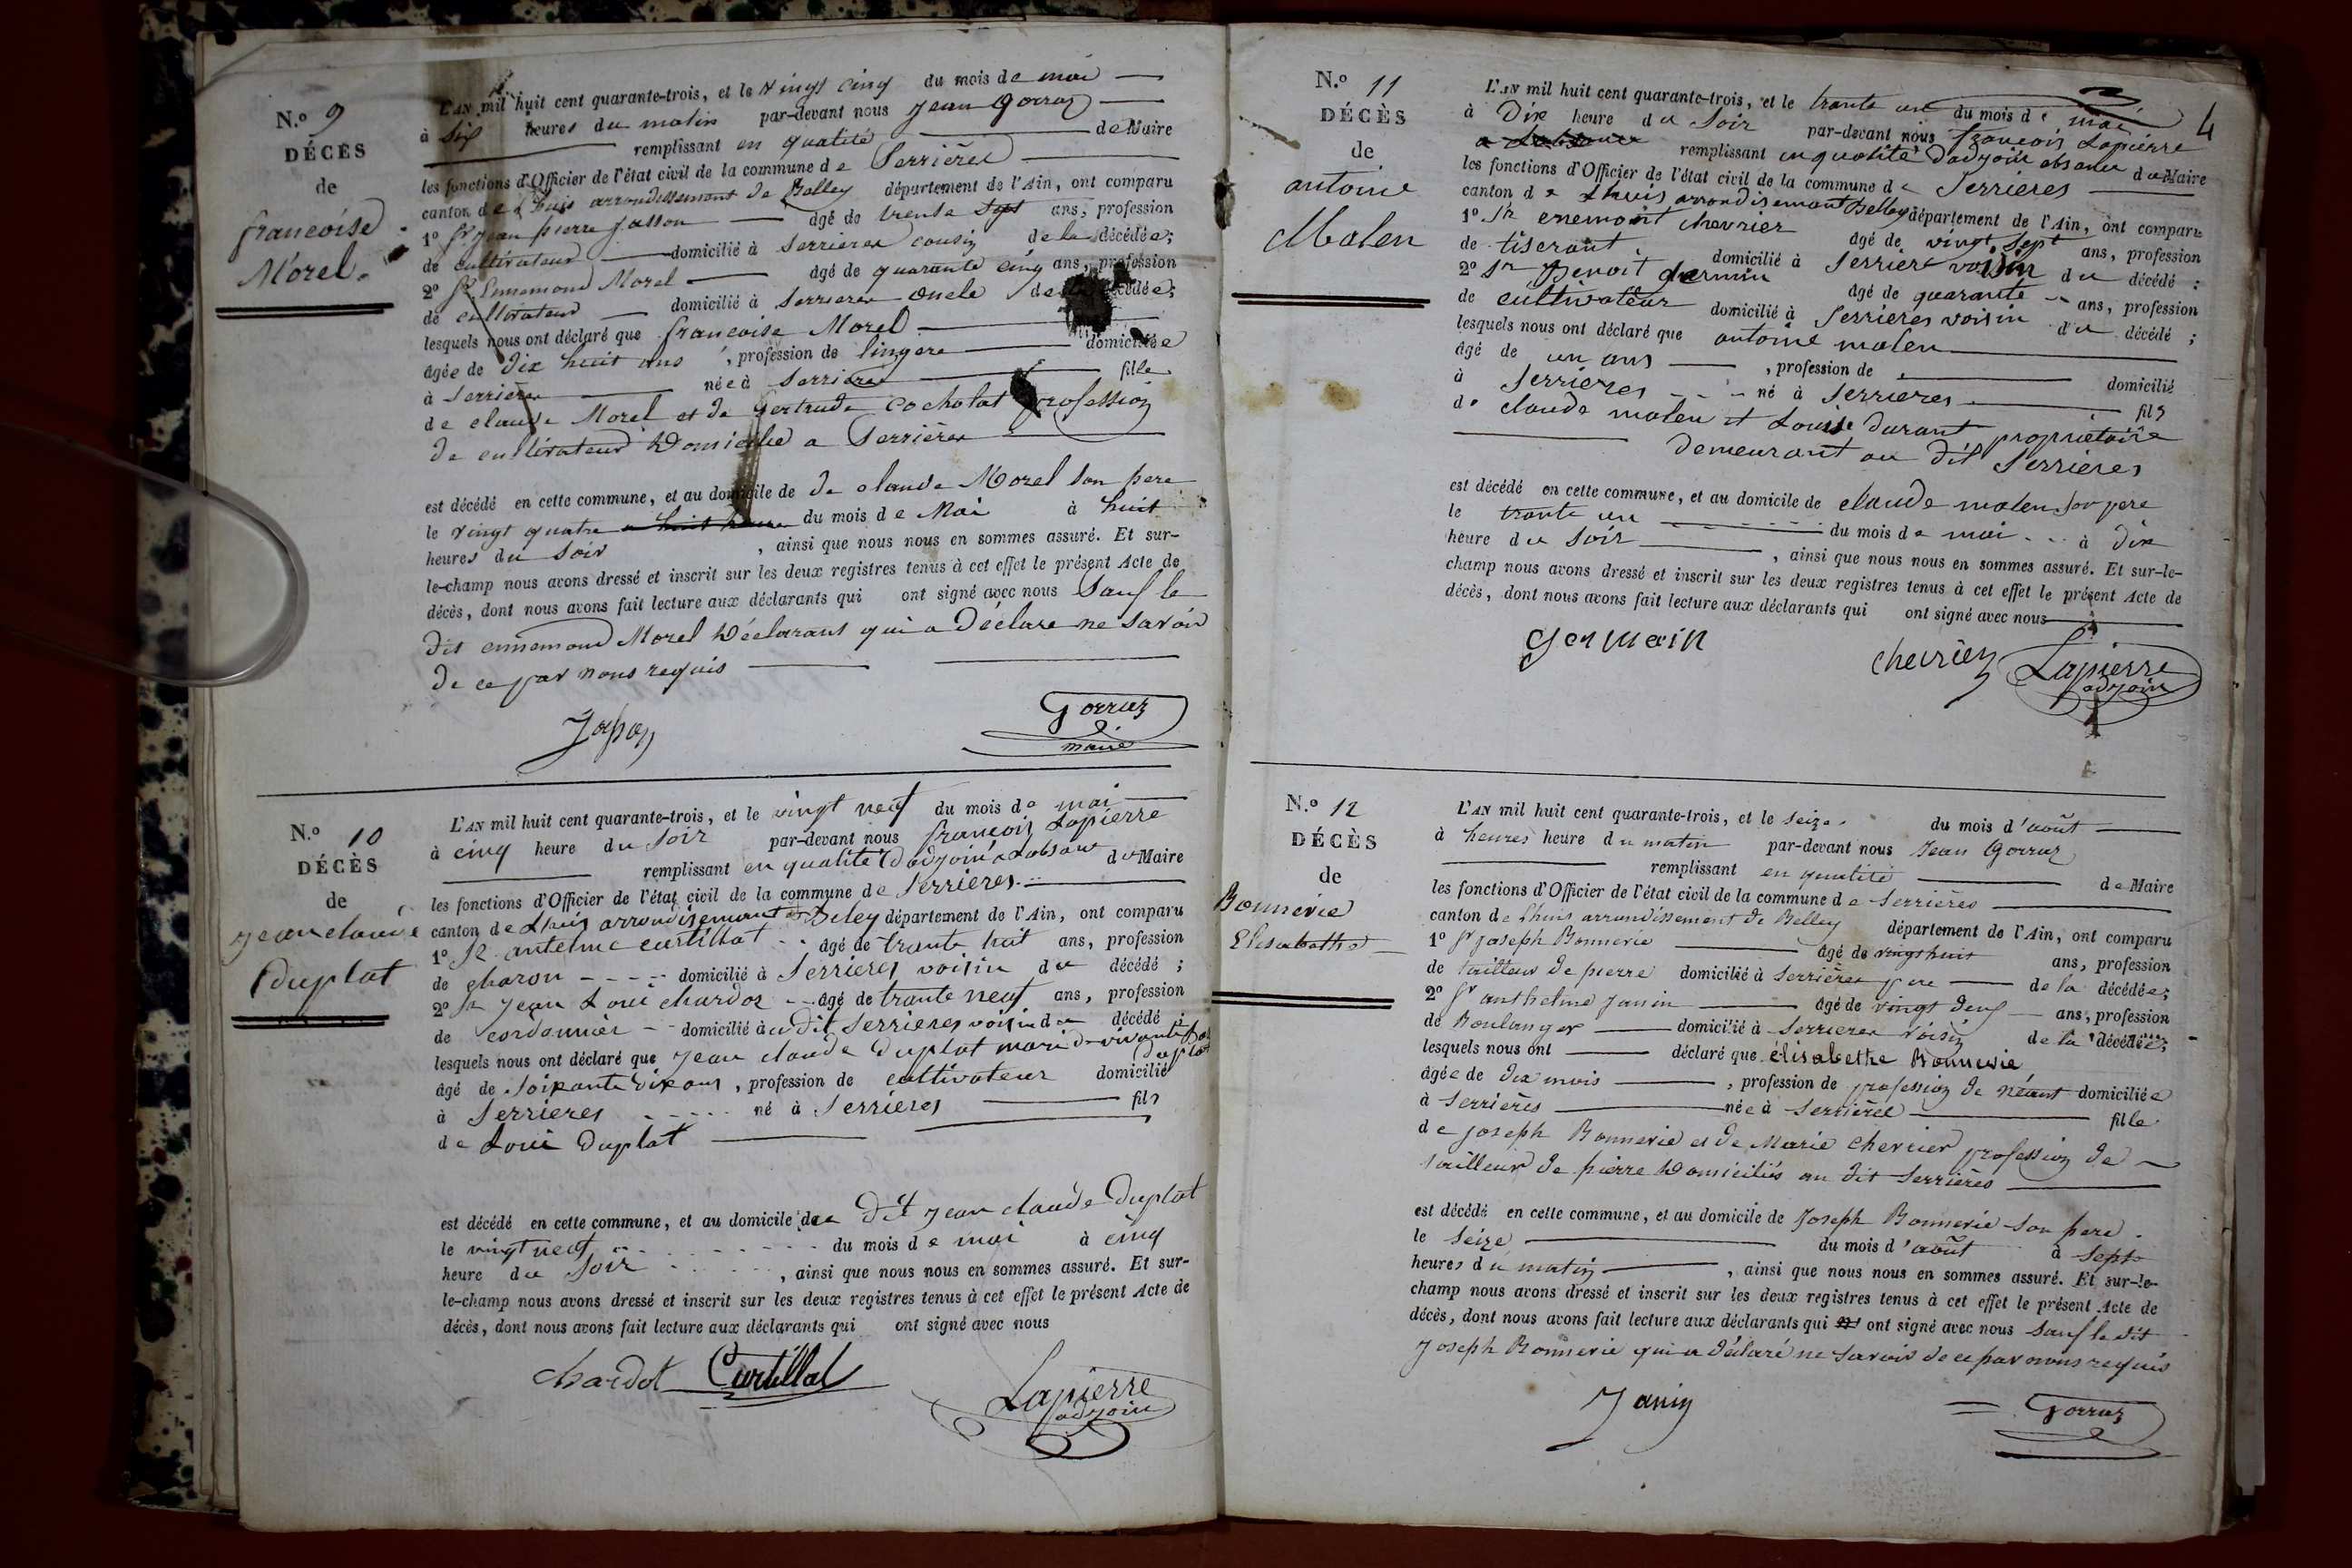 N.o 9
DÉCÈS
de
francoise
Morel.
L'AN mil huit cent quarante-trois, et le vingt cinq du mois de mai
à six heures du matin par-devant nous jean Gorruz
remplissant en qualité de Maire
les fonctions d'Officier de l'état civil de la commune de Serrières
canton de Lhuis arrondissement de Belley département de l'Ain, ont comparu
1o Sr jean pierre jasson âgé de trente sept ans, profession
de cultivateur domicilié à Serrieres cousin de la décédée;
2o Sr Ennemond Morel âgé de quarante cinq ans, profession
de cultivateur domicilié à Serrieres oncle de la décédée;
lesquels nous ont déclaré que francoise Morel
âgée de dix huit ans, profession de lingere domiciliée
à Serrières née à Serrieres fille
de claude Morel et de Gertrude cocholat profession
de cultivateur Domicilié a Serrières
est décédé en cette commune, et au domicile de de claude Morel son pere
le vingt quatre a huit heures du mois de Mai à huit
heures du soir, ainsi que nous nous en sommes assuré. Et sur-
le-champ nous avons dressé et inscrit sur les deux registres tenus à cet effet le présent Acte de
décès, dont nous avons fait lecture aux déclarants qui ont signé avec nous Sauf le
dit ennemond Morel Déclarant qui a Déclare ne Savoir
de ce par nous requis
Gorruz
maire
N.o 10
DÉCÈS
de
jean claude
Duplat
L'AN mil huit cent quarante-trois, et le vingt neuf du mois de mai
à cinq heure du soir par-devant nous francois Lapierre
remplissant en qualité d'adjoin a Labsanc du Maire
les fonctions d'Officier de l'état civil de la commune de Serrieres
canton de Lhuis arrondisement de Beley département de l'Ain, ont comparu
1o Sr antelme curtillat âgé de trante huit ans, profession
de charon domicilié à Serrieres voisin du décédé;
2o Sr jean Loui chardot âgé de trante neuf ans, profession
de cordonnier domicilié à u dit Serrieres voisin du décédé;
lesquels nous ont déclaré que jean claude Duplat mari de vivante
duplat
âgé de Soixante dix ans, profession de cultivateur domicilié
à Serrieres né à Serrieres fils
de Loui Duplat
est décédé en cette commune, et au domicile du Dit jean claude Duplat
le vingt neuf du mois de mai à cinq
heure du Soir, ainsi que nous nous en sommes assuré. Et sur-
le-champ nous avons dressé et inscrit sur les deux registres tenus à cet effet le présent Acte de
décès, dont nous avons fait lecture aux déclarants qui ont signé avec nous
chardot Curtillat
Lapierre
adjoin
4
N.o 11
DÉCÈS
de
antoine
Molen
L'AN mil huit cent quarante-trois, et le trante un du mois de mai
à Dix heure du Soir par-devant nous francois Lapierre
remplissant en qualité d'adjoin absance du Maire
les fonctions d'Officier de l'état civil de la commune de Serrieres
canton de Lhuis arrondisemant Belley département de l'Ain, ont comparu
1o Sr enemont chevrier âgé de vingt sept ans, profession
de tiserant domicilié à Serriere voisin du décédé;
2o Sr Benoit germin âgé de quarante ans, profession
de cultivateur domicilié à Serrieres voisin du décédé;
lesquels nous ont déclaré que antoine molen
âgé de un ans, profession de domicilié
à Serrieres né à Serrieres fils
de claude molen et Louise Durant propriétaire
demeurant au dit Serrieres
est décédé en cette commune, et au domicile de claude molen son pere
le trante un du mois de mai à dix
heure du Soir, ainsi que nous nous en sommes assuré. Et sur-le-
champ nous avons dressé et inscrit sur les deux registres tenus à cet effet le présent Acte de
décès, dont nous avons fait lecture aux déclarants qui ont signé avec nous
germain
chevrier Lapierre
adjoin
N.o 12
DÉCÈS
de
Bonnerie
Elisabethe
L'AN mil huit cent quarante-trois, et le seize du mois d'août
à heures heure du matin par-devant nous Jean Gorruz
remplissant en qualité de Maire
les fonctions d'Officier de l'état civil de la commune de Serrières
canton de Lhuis arrondissement de Belley département de l'Ain, ont comparu
1o Sr joseph Bonnerie âgé de vingt huit ans, profession
de tailleur de pierre domicilié à Serrières pere de la décédée;
2o Sr anthelme janin âgé de vingt deux ans, profession
de Boulanger domicilié à Serrieres voisin de la décédée;
lesquels nous ont déclaré que élisabethe Bonnerie
âgée de dix mois, profession de profession de néant domiciliée
à Serrières née à Serrières fille
de joseph Bonnerie et de Marie chevrier profession de
tailleur de pierre Domiciliés au dit Serrières
est décédé en cette commune, et au domicile de Joseph Bonnerie son pere.
le Seize du mois d'août à sept
heures du matin, ainsi que nous nous en sommes assuré. Et sur-le-
champ nous avons dressé et inscrit sur les deux registres tenus à cet effet le présent Acte de
décès, dont nous avons fait lecture aux déclarants qui ont signé avec nous sauf le dit
Joseph Bonnerie qui a déclaré ne savoir de ce par nous requis
Janin Gorruz